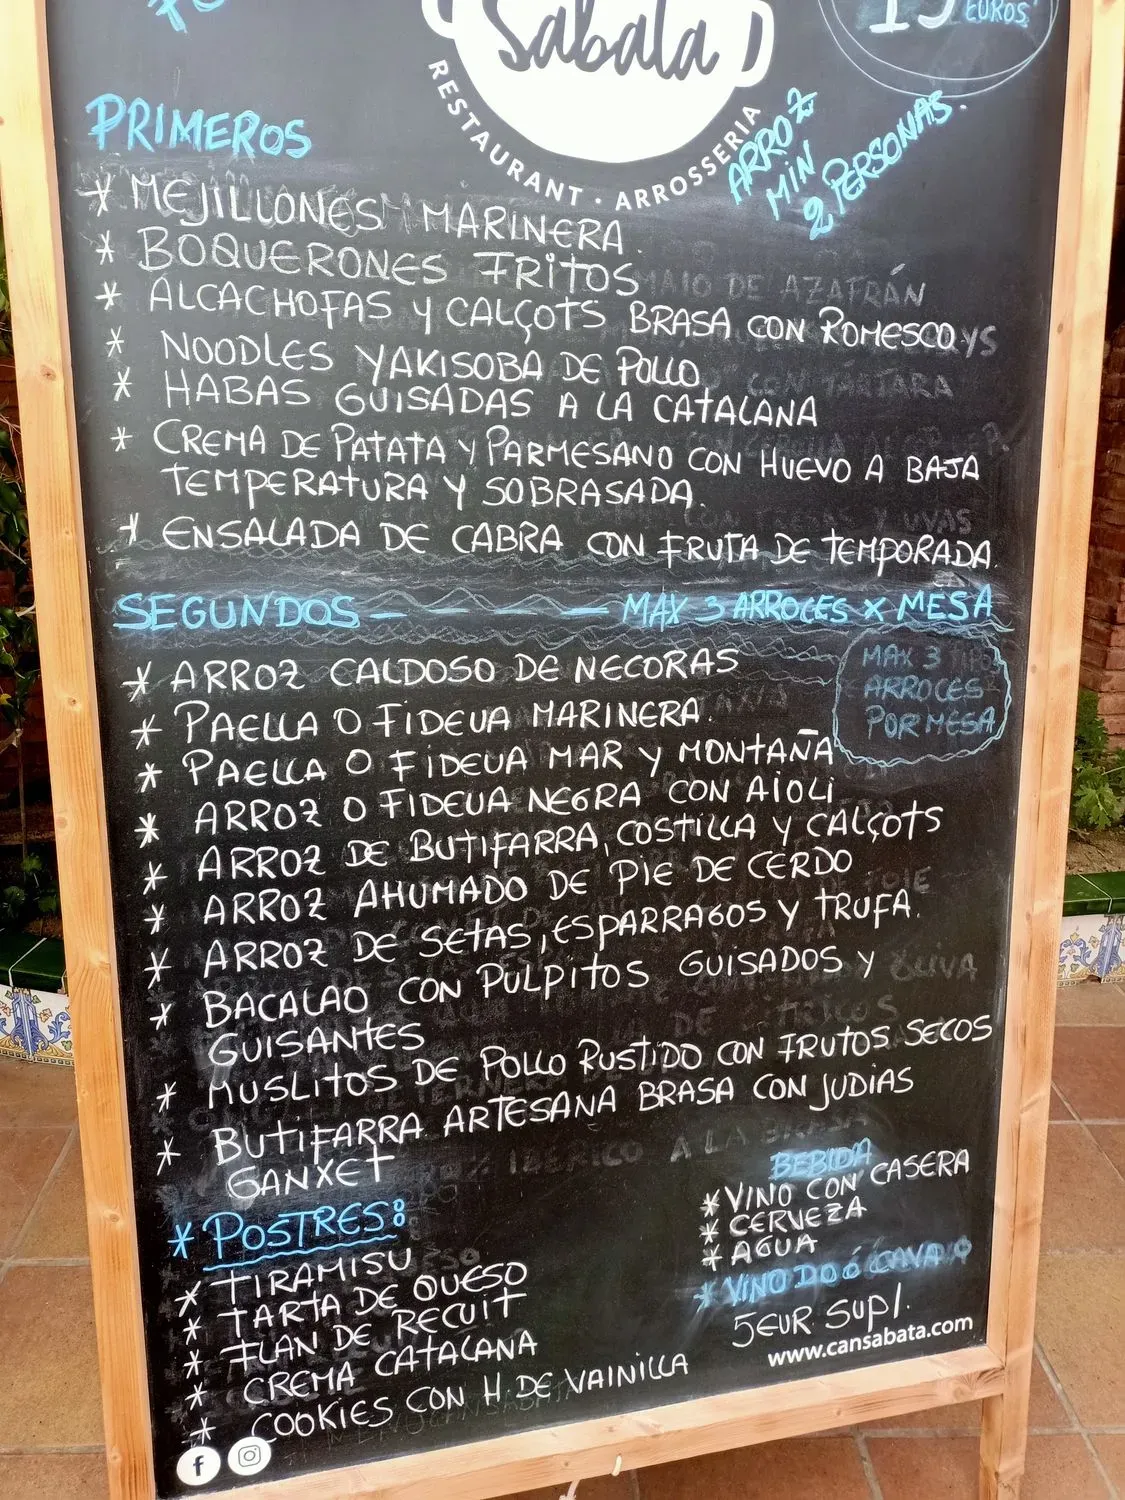 Sabata
RESTAURANT · ARROSSERIA
EUROS
ARROZ
MIN
2 PERSONAS.
PRIMEROS
* MEJILLONES MARINERA.
* BOQUERONES FRITOS
* ALCACHOFAS Y CALÇOTS BRASA CON ROMESCO
* NOODLES YAKISOBA DE POLLO
* HABAS GUISADAS A LA CATALANA
* CREMA DE PATATA Y PARMESANO CON HUEVO A BAJA
TEMPERATURA Y SOBRASADA.
* ENSALADA DE CABRA CON FRUTA DE TEMPORADA.
SEGUNDOS - MAX 3 ARROCES X MESA
MAX 3 TIPOS
ARROCES
POR MESA
* ARROZ CALDOSO DE NECORAS
* PAELLA O FIDEUA MARINERA.
* PAELLA O FIDEUA MAR Y MONTAÑA
* ARROZ O FIDEUA NEGRA CON AIOLI
* ARROZ DE BUTIFARRA, COSTILLA Y CALÇOTS
* ARROZ AHUMADO DE PIE DE CERDO
* ARROZ DE SETAS, ESPARRAGOS Y TRUFA.
* BACALAO CON PULPITOS GUISADOS Y
GUISANTES
* MUSLITOS DE POLLO RUSTIDO CON FRUTOS SECOS
* BUTIFARRA ARTESANA BRASA CON JUDIAS
GANXET
* POSTRES:
* TIRAMISU
* TARTA DE QUESO
* FLAN DE RECUIT
* CREMA CATALANA
* COOKIES CON H DE VAINILLA
BEBIDA
* VINO CON CASERA
* CERVEZA
* AGUA
* VINO DO ó CAVA
5EUR SUPl.
www.cansabata.com